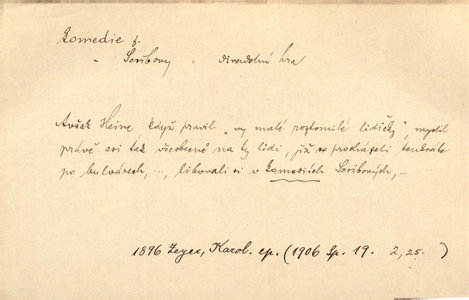 komedie f.
„ Scribovy = divadelní hra
Avšak Heine, když pravil „vy malé roztomilé lidičky" myslil
právě asi tak všeobecně na ty lidi, již se procházeli tenkráte
po bulvárech, ..., libovali si v komediích Scribových, ...
1896 Zeyer, Karol. ep. (1906 Sp. 19. 2, 25.)